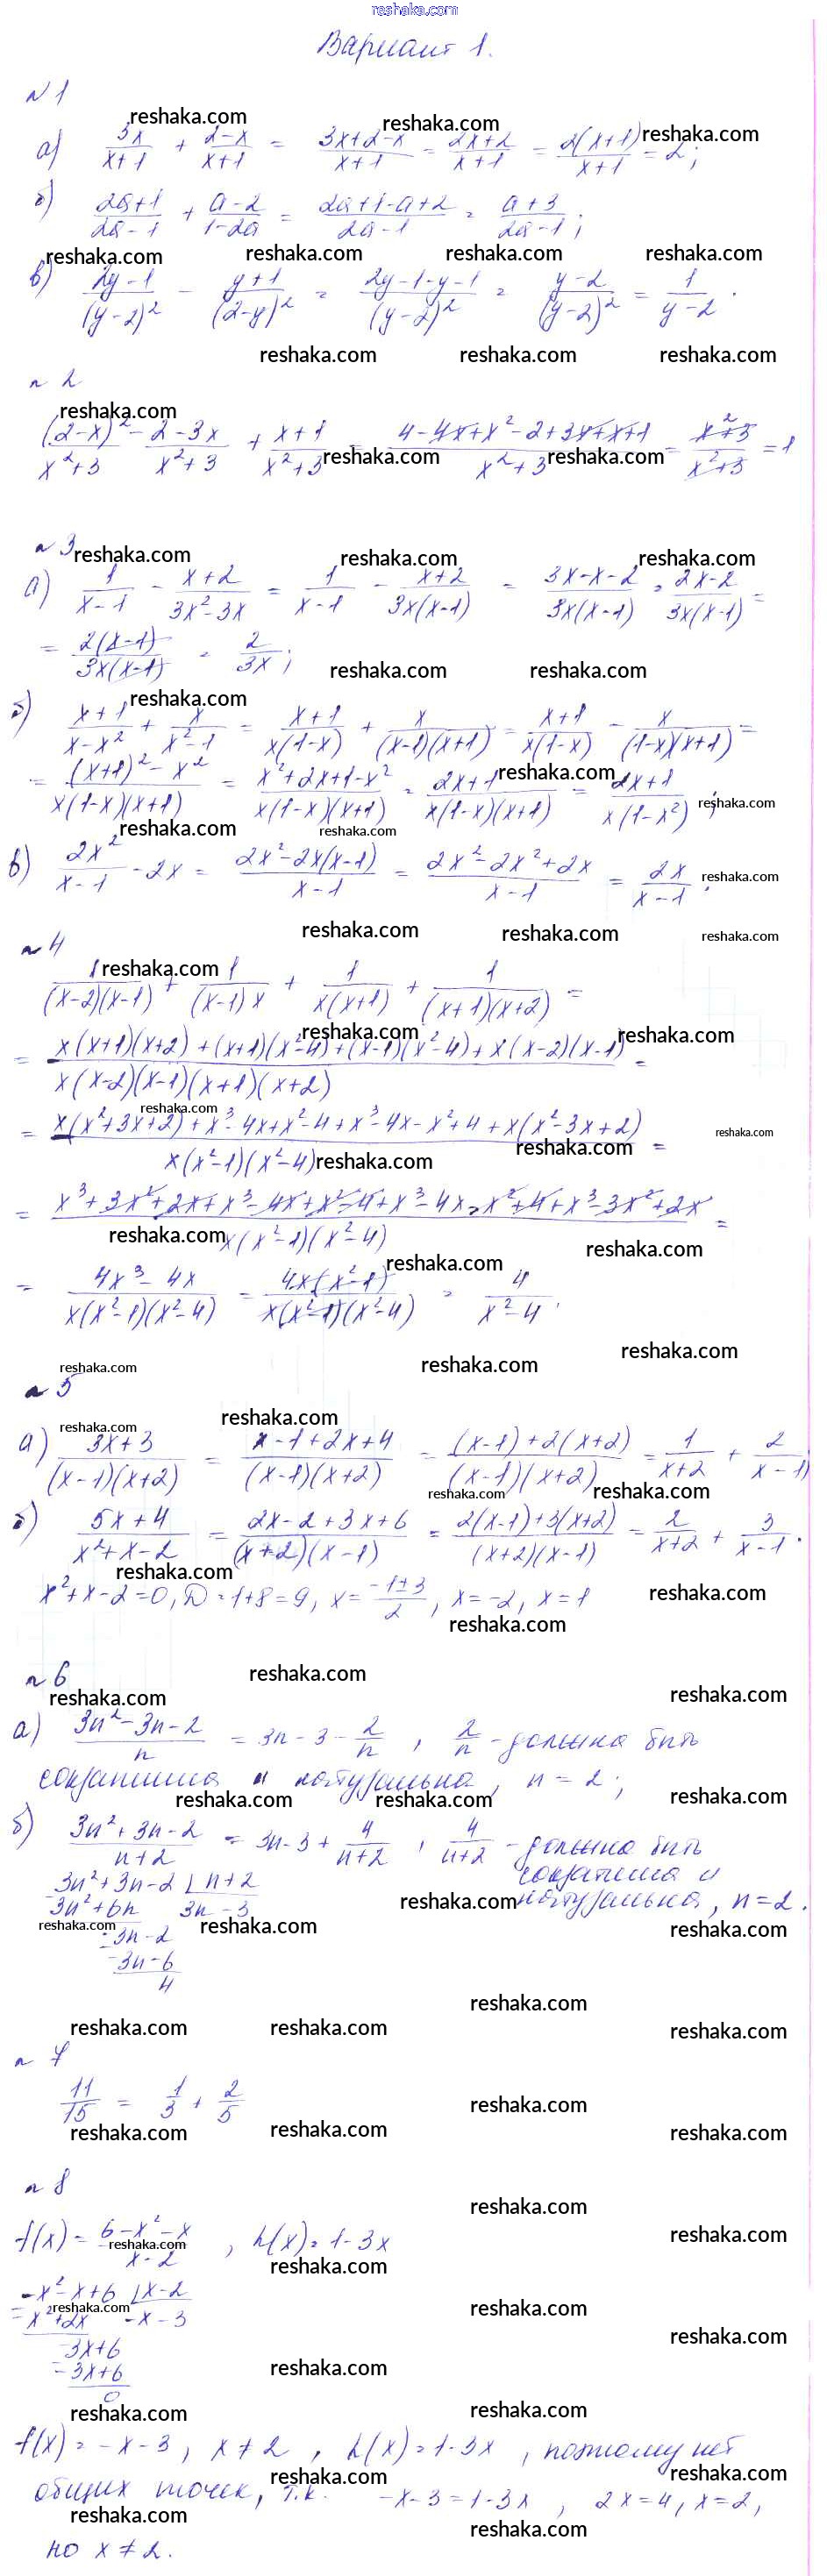 reshaka.com
Вариант 1.
№ 1
а) 3x/(x+1) + (2-x)/(x+1) = (3x+2-x)/(x+1) = (2x+2)/(x+1) = 2(x+1)/(x+1) = 2;
б) (2a+1)/(2a-1) + (a-2)/(1-2a) = (2a+1-a+2)/(2a-1) = (a+3)/(2a-1);
в) (2y-1)/(y-2)² - (y+1)/(2-y)² = (2y-1-y-1)/(y-2)² = (y-2)/(y-2)² = 1/(y-2).
№ 2
(2-x)²/(x²+3) - (2-3x)/(x²+3) + (x+1)/(x²+3) = (4-4x+x²-2+3x+x+1)/(x²+3) = (x²+3)/(x²+3) = 1
№ 3
а) 1/(x-1) - (x+2)/(3x²-3x) = 1/(x-1) - (x+2)/(3x(x-1)) = (3x-x-2)/(3x(x-1)) = (2x-2)/(3x(x-1)) =
= 2(x-1)/(3x(x-1)) = 2/(3x);
б) (x+1)/(x-x²) + x/(x²-1) = (x+1)/(x(1-x)) + x/((x-1)(x+1)) = (x+1)/(x(1-x)) - x/((1-x)(x+1)) =
= ((x+1)²-x²)/(x(1-x)(x+1)) = (x²+2x+1-x²)/(x(1-x)(x+1)) = (2x+1)/(x(1-x)(x+1)) = (2x+1)/(x(1-x²));
в) 2x²/(x-1) - 2x = (2x²-2x(x-1))/(x-1) = (2x²-2x²+2x)/(x-1) = 2x/(x-1).
№ 4
1/((x-2)(x-1)) + 1/((x-1)x) + 1/(x(x+1)) + 1/((x+1)(x+2)) =
= (x(x+1)(x+2)+(x+1)(x²-4)+(x-1)(x²-4)+x(x-2)(x-1))/(x(x-2)(x-1)(x+1)(x+2)) =
= (x(x²+3x+2)+x³-4x+x²-4+x³-4x-x²+4+x(x²-3x+2))/(x(x²-1)(x²-4)) =
= (x³+3x²+2x+x³-4x+x²-4+x³-4x-x²+4+x³-3x²+2x)/(x(x²-1)(x²-4)) =
= (4x³-4x)/(x(x²-1)(x²-4)) = 4x(x²-1)/(x(x²-1)(x²-4)) = 4/(x²-4).
№ 5
а) (3x+3)/((x-1)(x+2)) = (x-1+2x+4)/((x-1)(x+2)) = ((x-1)+2(x+2))/((x-1)(x+2)) = 1/(x+2) + 2/(x-1);
б) (5x+4)/(x²+x-2) = (2x-2+3x+6)/((x+2)(x-1)) = (2(x-1)+3(x+2))/((x+2)(x-1)) = 2/(x+2) + 3/(x-1).
x²+x-2=0, D=1+8=9, x=(-1±3)/2, x=-2, x=1
№ 6
а) (3n²-3n-2)/n = 3n-3-2/n, 2/n - должна быть
сократима и натуральна, n=2;
б) (3n²+3n-2)/(n+2) = 3n-3+4/(n+2), 4/(n+2) - должна быть
сократима и
натуральна, n=2.
3n²+3n-2 | n+2
3n²+6n 3n-3
-3n-2
-3n-6
4
№ 7
11/15 = 1/3 + 2/5
№ 8
f(x) = (6-x²-x)/(x-2), h(x)=1-3x
-x²-x+6 | x-2
-x²+2x -x-3
-3x+6
-3x+6
0
f(x)=-x-3, x≠2, h(x)=1-3x, поэтому нет
общих точек, т.к. -x-3=1-3x, 2x=4, x=2,
но x≠2.